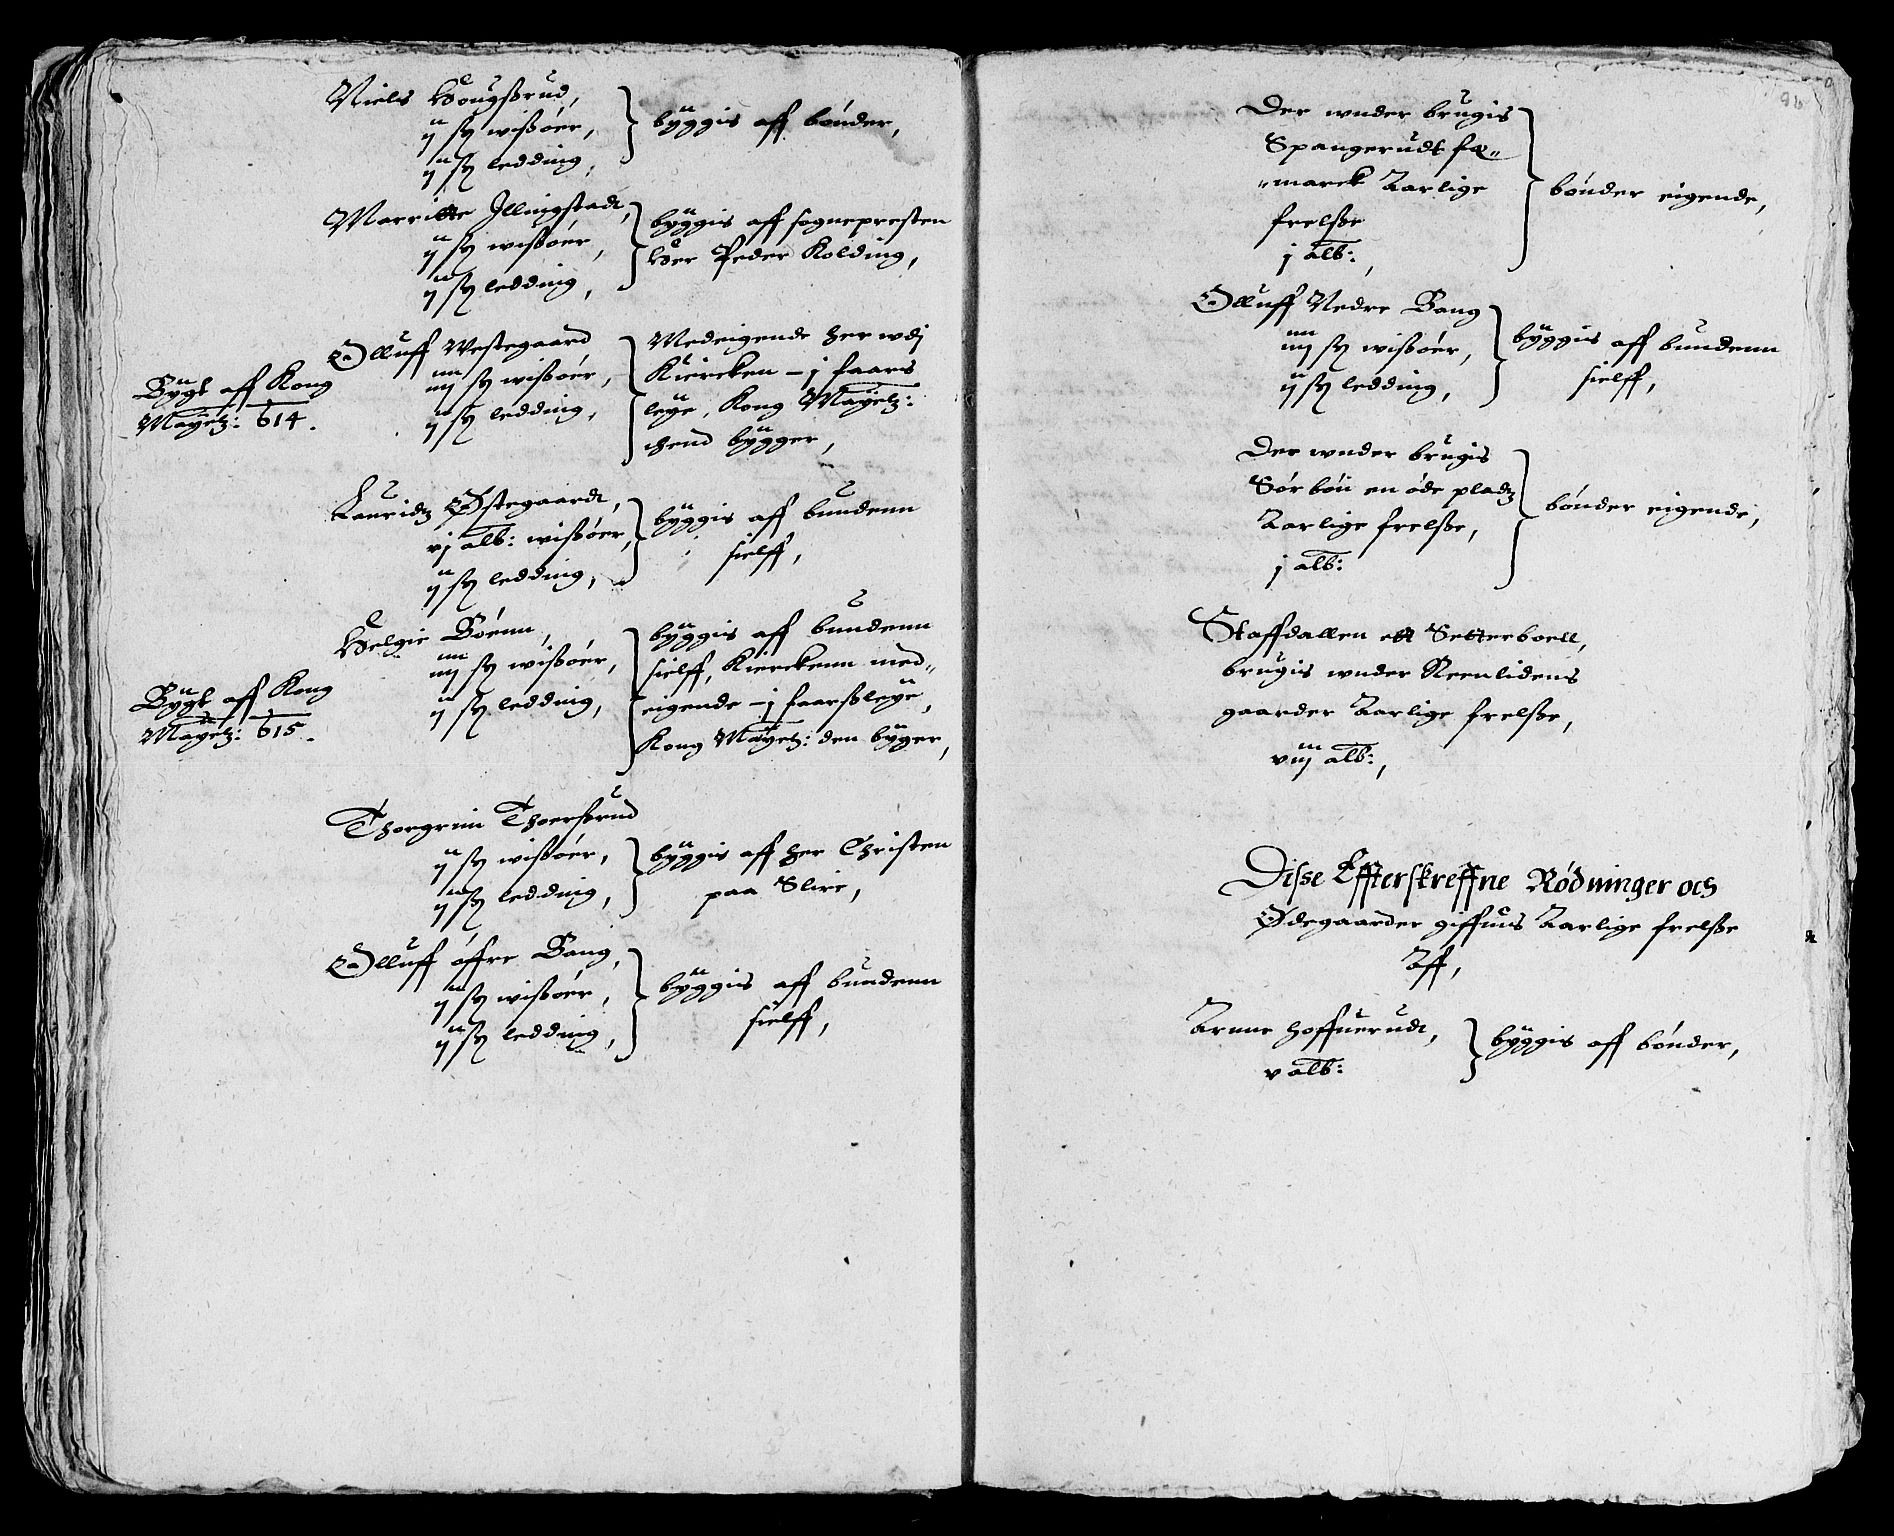 Niels Hougsrud,
ij sȝ wissøer,
ij sȝ ledding,
byggis aff bønder,
Marritte Jllingstadt,
ij sȝ wissøer,
ij sȝ ledding,
byggis aff sognepresten
Her Peder Kolding,
Bygt aff Kong
Mayetz: 614.
Olluff Westegaard
iiij sȝ wissøer,
ij sȝ ledding,
Medeigende her wdj
Kiercken – j faars
leye, Kong Mayetz:
thend bygger,
Lauridtz Østegaardt,
vj alb: wissøer,
ij sȝ ledding,
byggis aff bundenn
sielff,
Bygt aff Kong
Mayetz: 615.
Helgie Bøenn,
iiij sȝ wissøer,
ij sȝ ledding,
byggis aff bundenn
sielff, Kierckenn med-
eigende – j faarssleye,
Kong Mayetz: den byger,
Thorgrim Thoersrud
ij sȝ wissøer,
ij sȝ ledding,
byggis aff her Christen
paa Slire,
Olluff øffre Bang,
ij sȝ wissøer,
ij sȝ ledding,
byggis aff bundenn
sielff,
96
Der wnder brugis
Spangerudt fæ-
marck Aarlige
frelsse
j alb:,
bønder eigende,
Olluff Nedre Bang
iiij sȝ wissøer,
ij sȝ ledding,
byggis aff bundenn
sielff,
Der wnder brugis
Sørbøn en øde pladtz
Aarlige frelsse,
j alb:
bønder eigende,
Staffdallen ett Setterboell,
brugis wnder Reenlidens
gaarder Aarlige frelsse,
viij alb:,
Disse Effterskreffne Rødninger och
Ødegaarder giffuis Aarlige frelsse
Aff,
Arnne Hoffuerudt,
v alb:
byggis aff bønder,